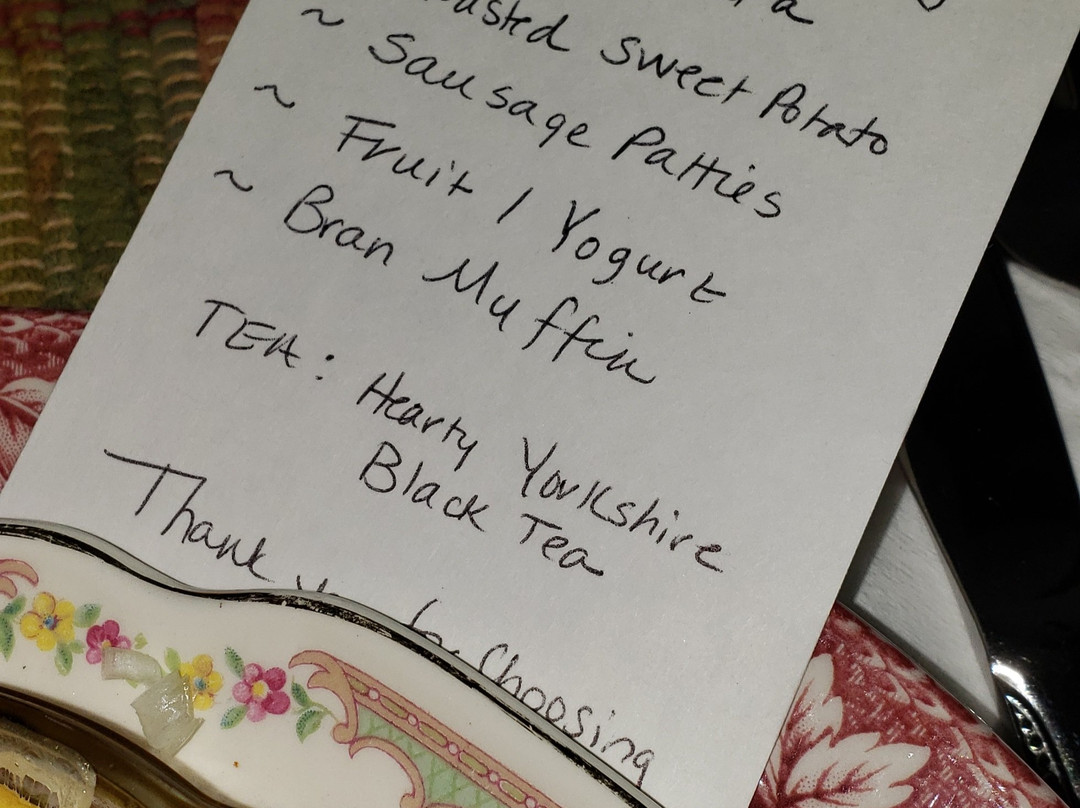 ~ Sweet Potato
~ Sausage Patties
~ Fruit / Yogurt
~ Bran Muffin
TEA: Hearty Yorkshire
Black Tea
Thank choosing